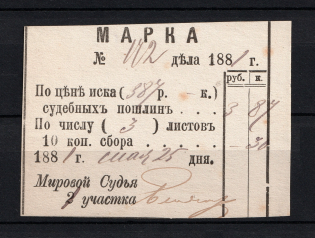 МАРКА
№ 112 дѣла 1881 г.
руб. к.
По цѣнѣ иска (387 р. к.)
судебныхъ пошлинъ . . . 3 87
По числу ( 3 ) листовъ
10 коп. сбора . . . . 30
1881 г. мая 25 дня.
Мировой Судья
2 участка